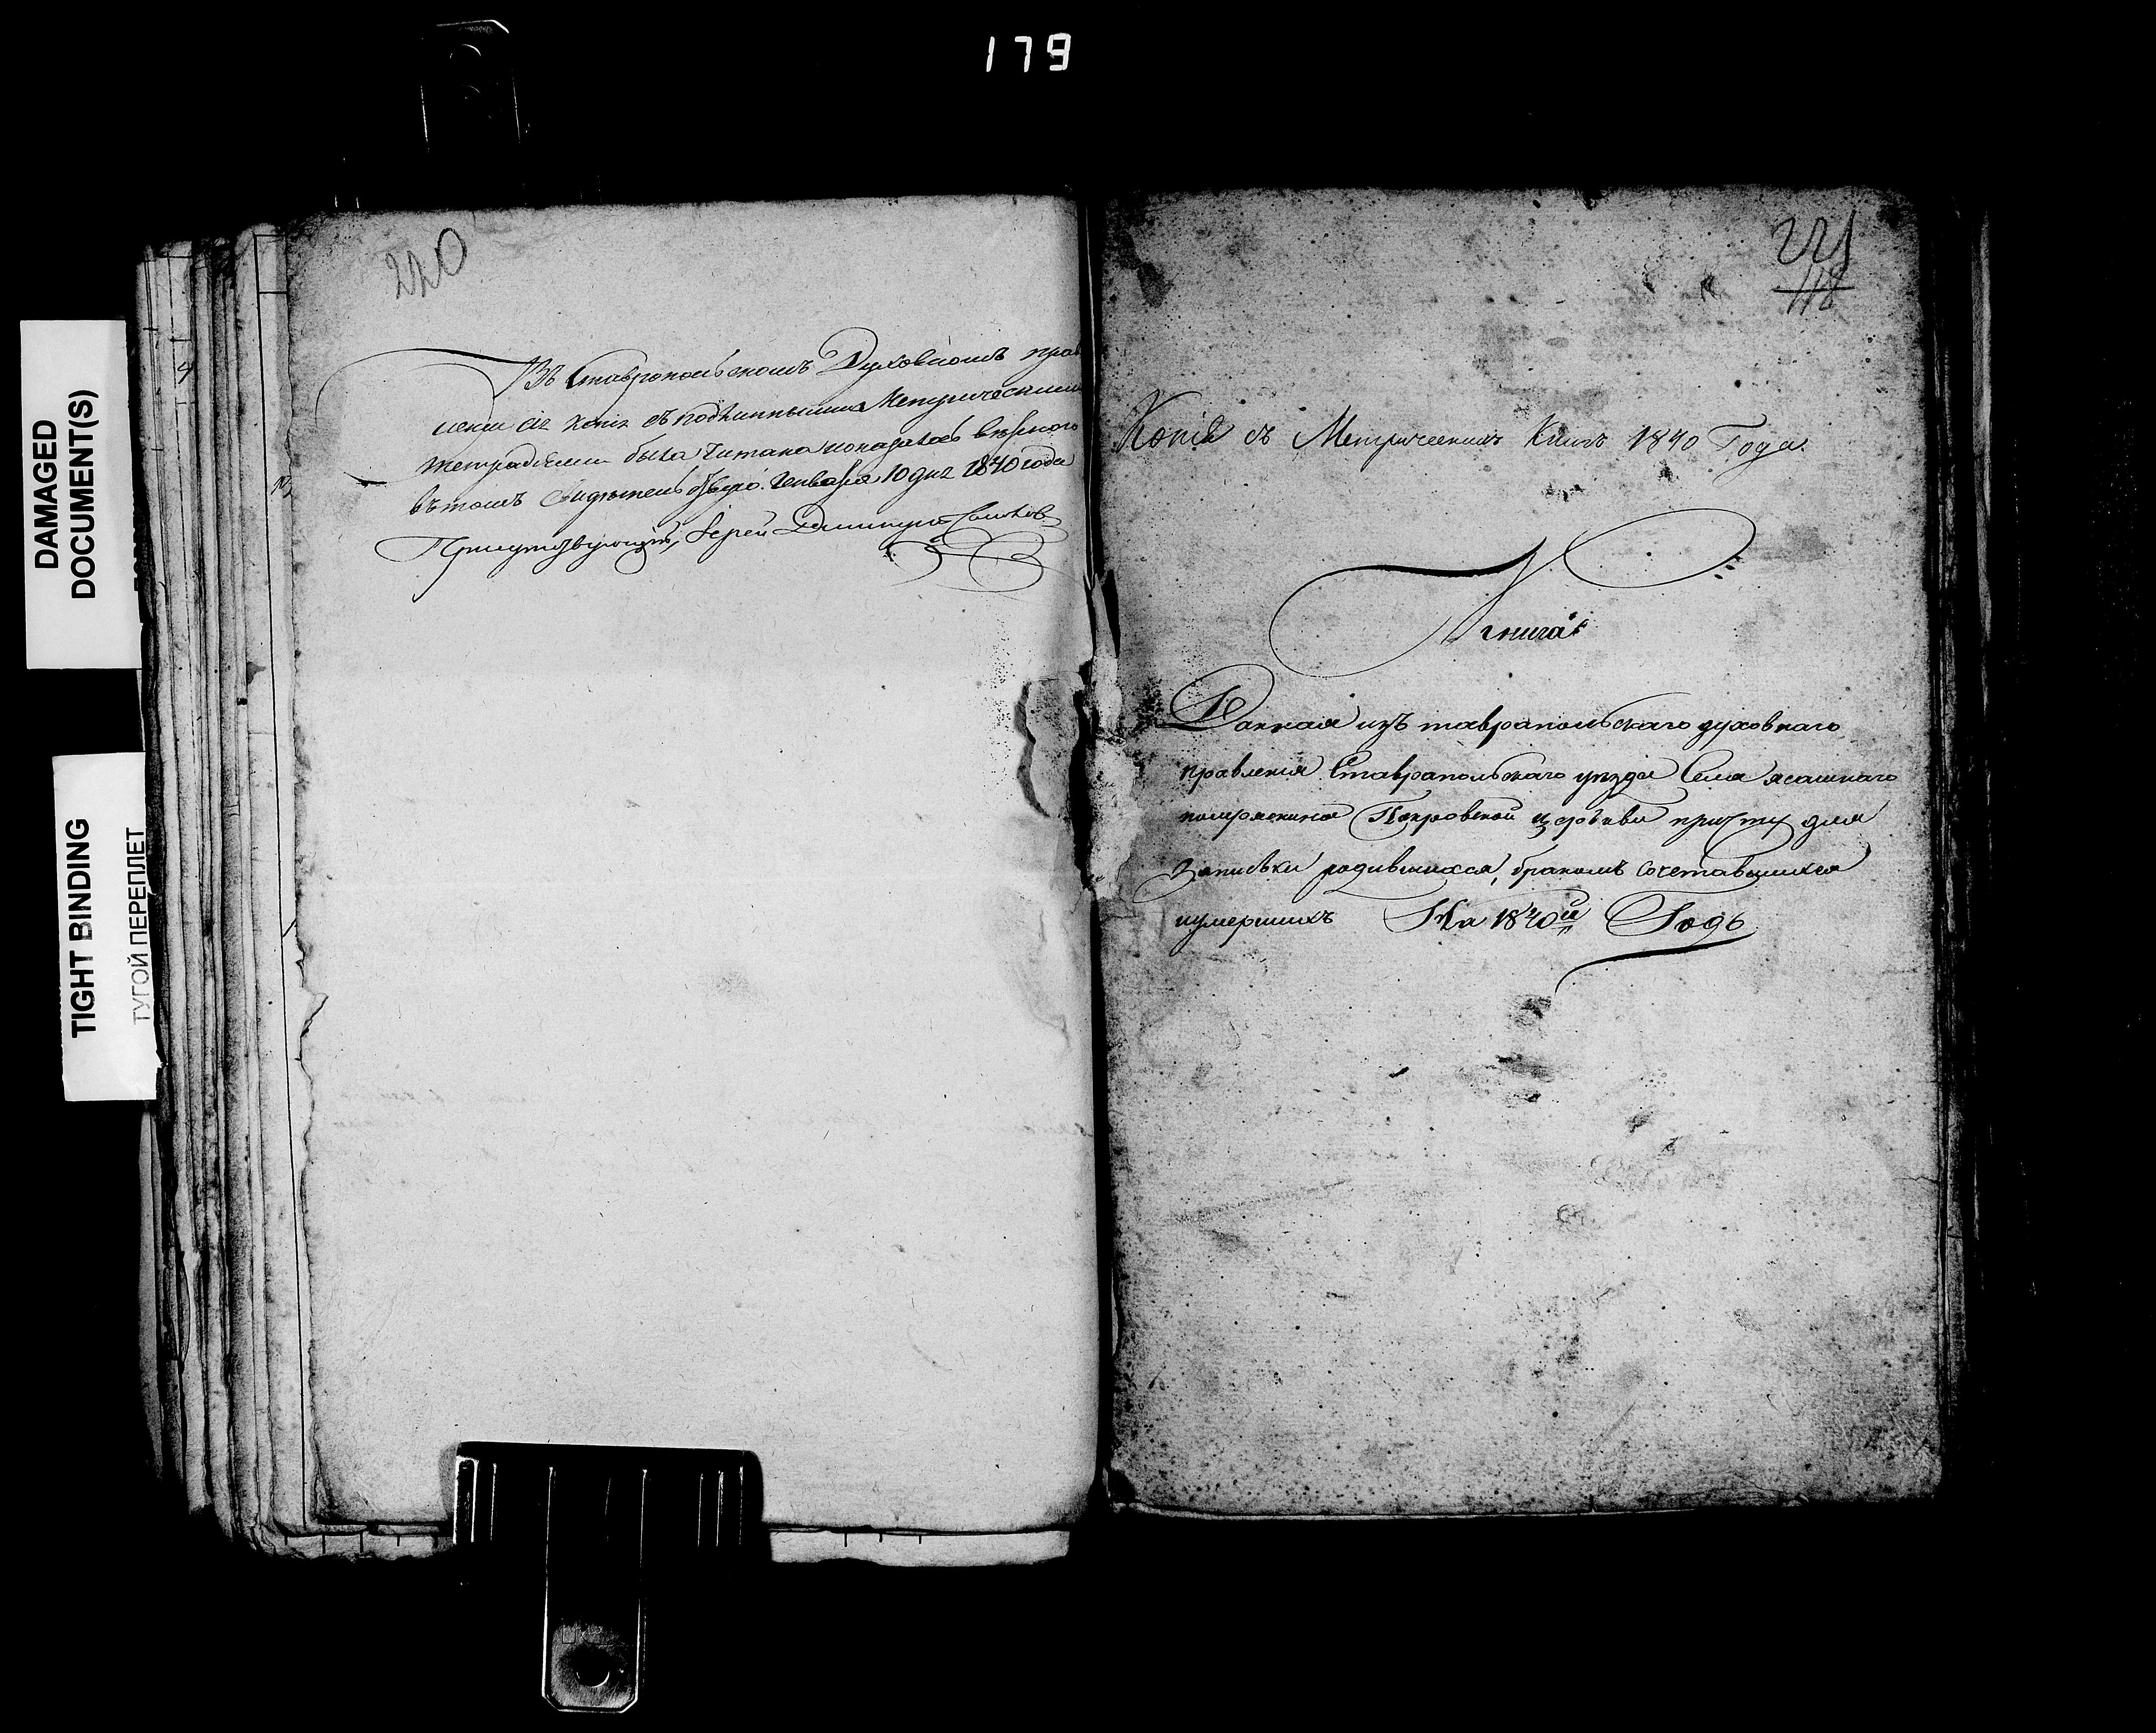 179
DAMAGED
DOCUMENT(S)
TIGHT BINDING
ТУГОЙ ПЕРЕПЛЕТ
220
Въ Ставропольскомъ Духовномъ прав
ленiи сiя копiя съ подлинными Метрическими
тетрадями была читана и оказалась вѣрною
въ томъ свидѣтельствую. Генваря 10 дня 1840 года
Присутствующiй, Iерей Димитрiй
221
118
Копiя съ Метрическихъ Книгъ 1840 Года.
Книга
Данная изъ таврапольскаго духовнаго
правления Ставрапольскаго уезда Села ясашнаго
Покровской церькви причту для
Записьки родившихся, бракомъ сочетавшихся
иумершихъ На 1840й Годъ